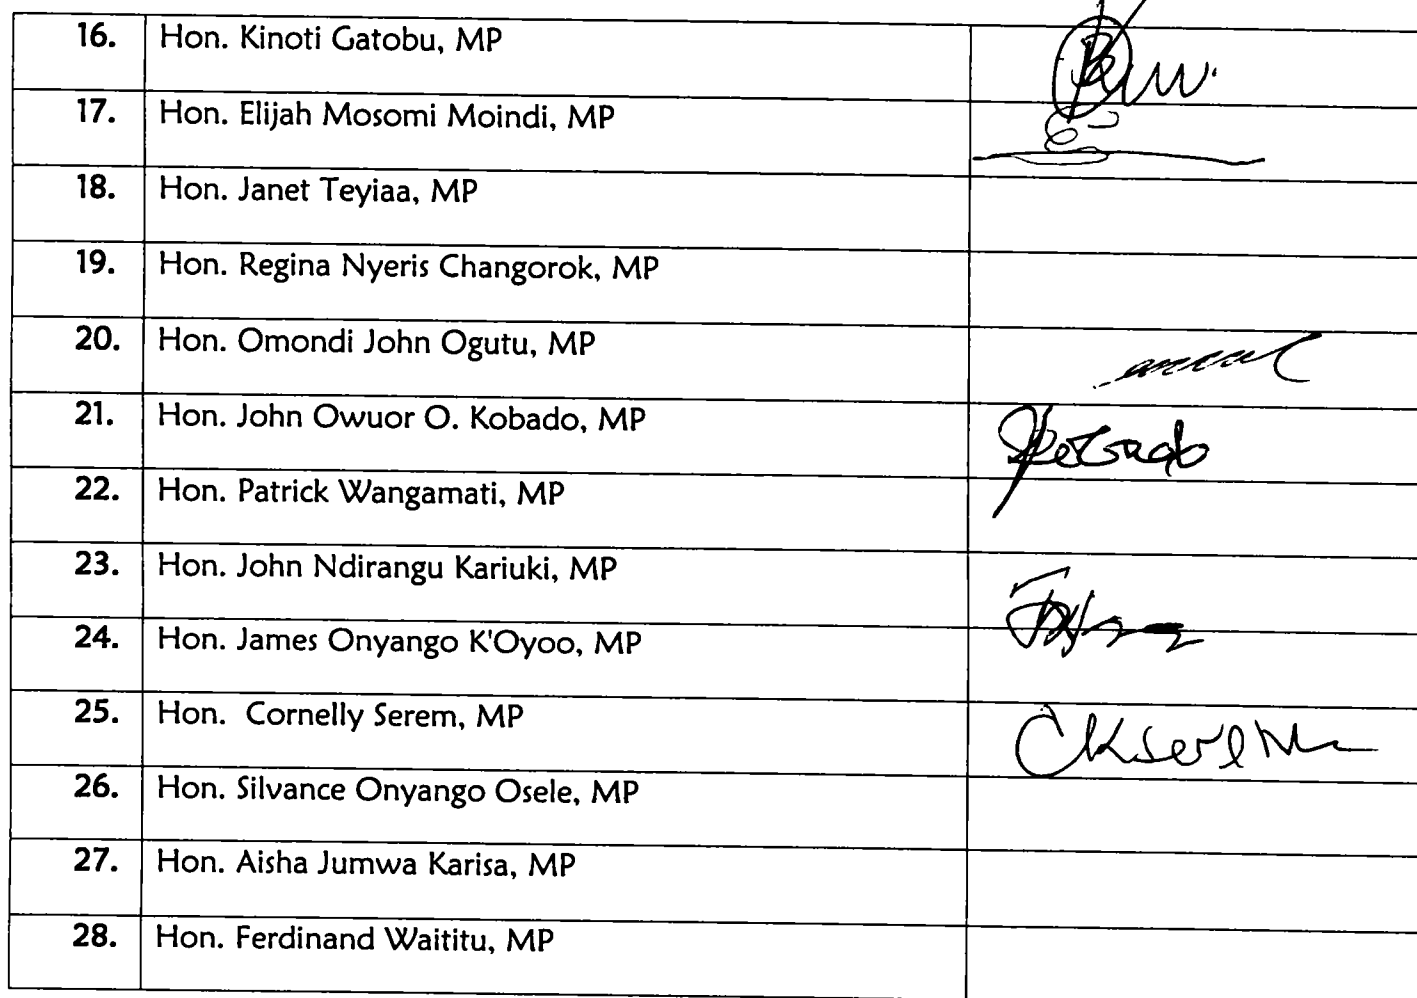 16. Hon. Kinoti Gatobu, MP
17. Hon. Elijah Mosomi Moindi, MP
18. Hon. Janet Teyiaa, MP
19. Hon. Regina Nyeris Changorok, MP
20. Hon. Omondi John Ogutu, MP
21. Hon. John Owuor O. Kobado, MP
22. Hon. Patrick Wangamati, MP
23. Hon. John Ndirangu Kariuki, MP
24. Hon. James Onyango K'Oyoo, MP
25. Hon. Cornelly Serem, MP
26. Hon. Silvance Onyango Osele, MP
27. Hon. Aisha Jumwa Karisa, MP
28. Hon. Ferdinand Waititu, MP